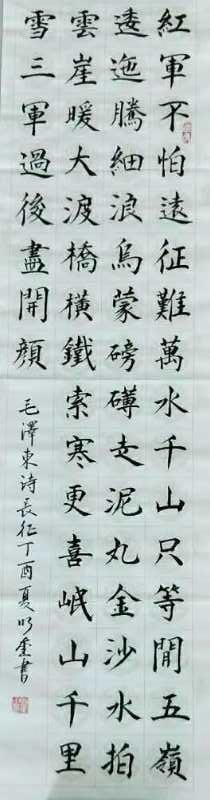 紅軍不怕遠征難萬水千山只等閒五嶺
逶迤騰細浪烏蒙磅礴走泥丸金沙水拍
雲崖暖大渡橋橫鐵索寒更喜岷山千里
雪三軍過後盡開顏
毛澤東诗長征丁酉夏明奎書